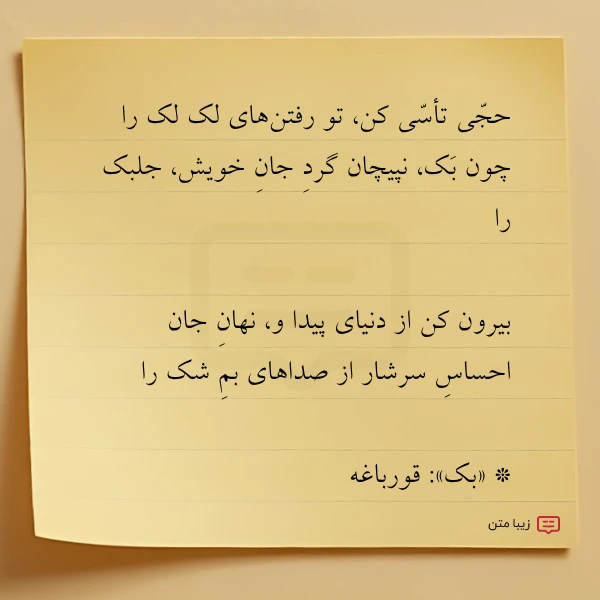 حجّی تأسّی کن، تو رفتن‌های لک لک را
چون بَک، نپیچان گردِ جانِ خویش، جلبک
را
بیرون کن از دنیای پیدا و، نهانِ جان
احساسِ سرشار از صداهای بمِ شک را
❊ «بک»: قورباغه
زیبا متن